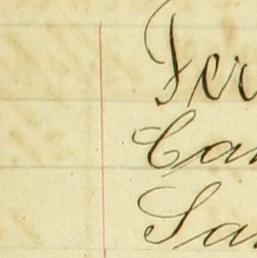 Fer
Can
San